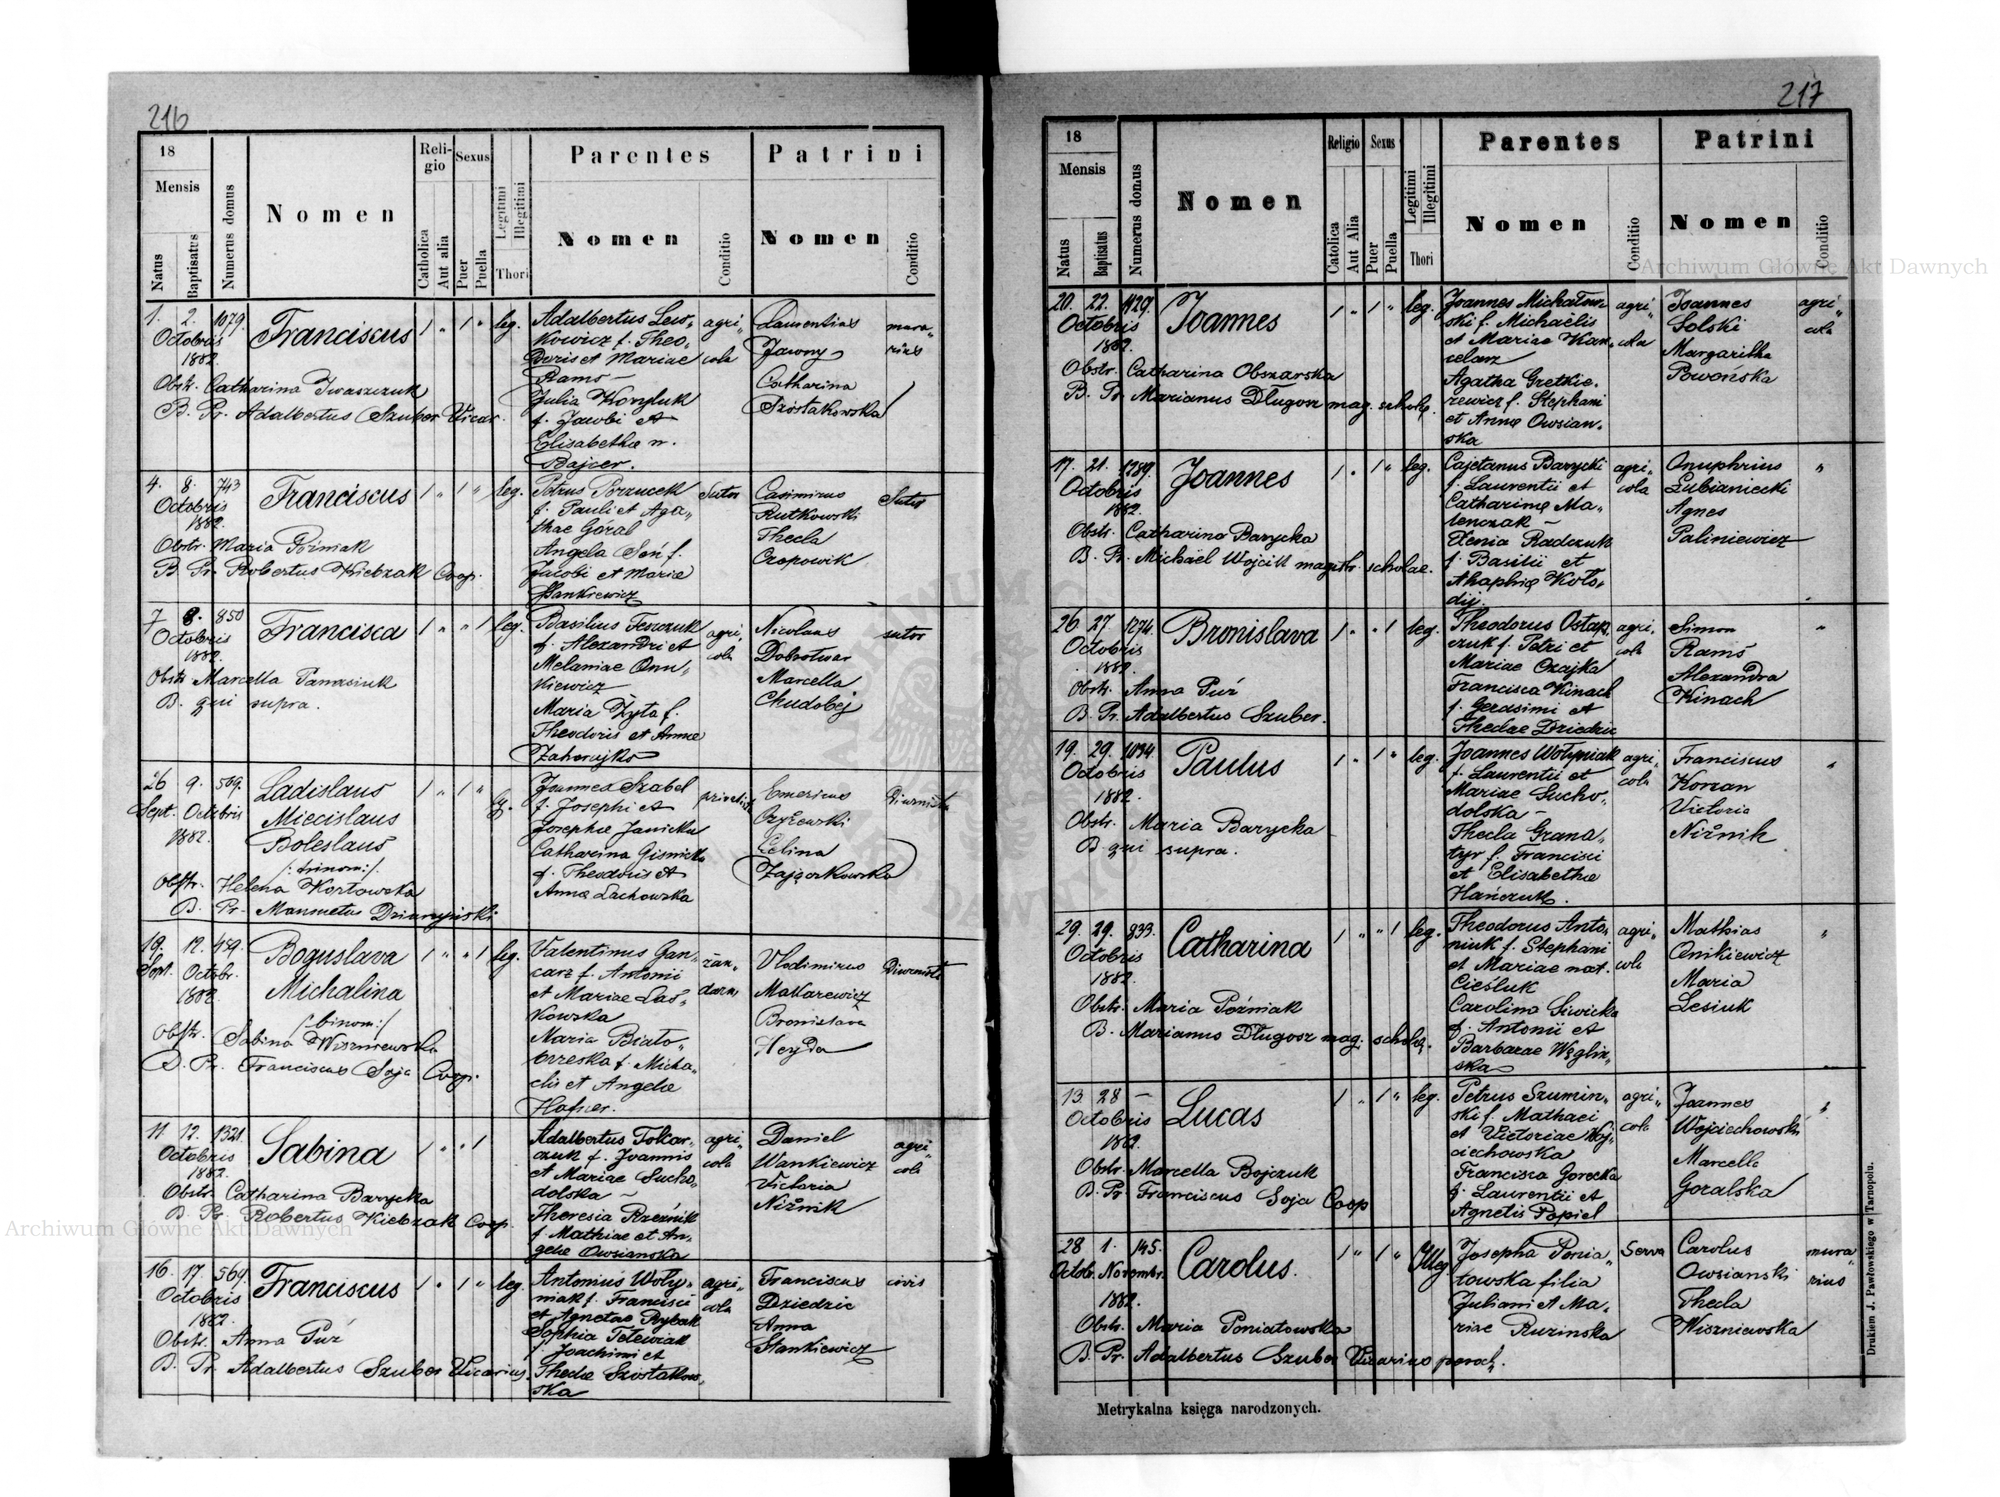 216
18
Mensis
Natus
Baptisatus
Numerus domus
Nomen
Religio
Catholica
Aut alia
Sexus
Puer
Puella
Legitimi
Illegitimi
Thori
Parentes
Nomen
Conditio
Patrini
Nomen
Conditio
1. 2. 1079.
Octobris
1882.
Franciscus
1 " 1 " leg.
Obstr. Catharina Iwaszczuk
B. Pr. Adalbertus Szuber Vicar.
Adalbertus Lew-
kowicz f. Theo-
doris et Mariae
Rams –
Julia Konyluk
f. Jacobi et
Elisabethae n.
Bajcer.
agri-
cola
Laurentius
Jawny
Catharina
Szostakowska
mura-
rius
4. 8. 743
Octobris
1882.
Franciscus
1 " 1 " leg.
Obstr. Maria Poźniak
B. Pr. Robertus Kiebzak Coop.
Petrus Porzucek
f. Pauli et Aga-
thae Góral
Angela Soń f.
Jacobi et Mariae
Stankiewicz
Sutor
Casimirus
Rutkowski
Thecla
Czopowik
Sutor
7 8. 850
Octobris
1882.
Francisca
1 " " 1 leg.
Obstr Marcella Panasiuk
B. qui supra.
Basilius Teszczuk
f. Alexandri et
Melaniae Onu-
kiewicz
Maria Zyta f.
Theodoris et Annae
Zahorajko
agri-
cola
Nicolaus
Dobrotwor
Marcella
Chudobej
sutor
26 9. 509.
Sept. Octobris
1882.
Ladislaus
Miecislaus
Boleslaus
/: trinom:/
1 " 1 "
lg.
Obstr. Helena Kortowska
B. Pr. Mammetus Dziurzyński
Joannes Szabel
f. Josephi et
Josephae Janicka
Catharina Gisnicka
f. Theodoris et
Annae Lachowska
Emericus
Czyżewski
Celina
Zajączkowska
Diurnista
19. 12. 459.
Sept. Octobr.
1882.
Boguslava
Michalina
/binom:/
1 " " 1 leg.
Obstr. Sabina Wiszniewska
B. Pr. Franciscus Soja Coop.
Valentinus Gan-
carz f. Antonii
et Mariae Las-
kowska
Maria Biało-
brzeska f. Micha-
elis et Angelae
Hafner.
żan-
darm
Vlodimirus
Makarewicz
Bronislava
Heyda
Diurnista
11 12. 1321.
Octobris
1882.
Sabina
1 " " 1
Obstr. Catharina Barycka
B. Pr. Robertus Kiebzak Coop.
Adalbertus Tokar-
czuk f. Joannis
et Mariae Sucho-
dolska –
Theresia Rzeźnik
f. Mathiae et An-
gelae Owsianska
agri-
cola
Daniel
Wankiewicz
Victoria
Niżnik
agri-
cola
16. 17. 569.
Octobris
1882.
Franciscus
1 " 1 " leg.
Obstr. Anna Pur
B. Pr. Adalbertus Szuber Vicarius.
Antonius Woly-
niak f. Francisci
et Agnetae Rybak
Sophia Tetewiak
f. Joachimi et
Theclae Szostakow-
ska
agri-
cola
Franciscus
Dziedzic
Anna
Stankiewicz
civis
217
18
Mensis
Natus
Baptisatus
Numerus domus
Nomen
Religio
Catolica
Aut Alia
Sexus
Puer
Puella
Legitimi
Illegitimi
Thori
Parentes
Nomen
Conditio
Patrini
Nomen
Conditio
20. 22. 1129.
Octobris
1882.
Joannes
1 " 1 " leg.
Obstr. Catharina Obszarska
B. Pr. Marianus Długosz mag. scholae.
Joannes Michałow-
ski f. Michaëlis
et Mariae Kan-
celarz
Agatha Gretkie-
rewicz f. Stephani
et Annae Owsian-
ska
agri-
cola
Joannes
Solski
Margaritha
Powońska
agri-
cola
17. 21. 1389.
Octobris
1882.
Joannes
1 " 1 " leg.
Obstr. Catharina Barycka
B. Pr. Michaël Wojcik magistr. scholae.
Cajetanus Barycki
f. Laurentii et
Catharinae Ma-
tenczak –
Xenia Radczuk
f. Basilii et
Ahaphiae Koło-
dij.
agri-
cola
Onuphrius
Łubianiecki
Agnes
Paliniewicz
"
26 27 1274.
Octobris
1882.
Bronislava
1 " " 1 leg.
Obstr. Anna Pur
B. Pr. Adalbertus Szuber.
Theodorus Ostap-
czuk f. Petri et
Mariae Czajka
Francisca Kinach
f. Gerasimi et
Theclae Dziedzic
agri-
cola
Simon
Rams
Alexandra
Kinach
"
19. 29. 1034.
Octobris
1882.
Paulus
1 " 1 " leg.
Obstr. Maria Barycka
B qui supra.
Joannes Wołyniak
f. Laurentii et
Mariae Sucho-
dolska –
Thecla Grana-
tyr f. Francisci
et Elisabethae
Hanczuk.
agri-
cola
Franciscus
Korzan
Victoria
Niżnik
"
29. 29. 833.
Octobris
1882.
Catharina
1 " " 1 leg.
Obstr. Maria Poźniak
B. Marianus Długosz mag. scholae.
Theodorus Anto-
niuk f. Stephani
et Mariae nat.
Cieśluk
Carolina Siwicka
f. Antonii et
Barbarae Węgliń-
ska
agri-
cola
Mathias
Onikiewicz
Maria
Lesiuk
"
13. 28 –
Octobris
1882.
Lucas
1 " 1 " leg.
Obstr. Marcella Bojczuk
B. Pr. Franciscus Soja Coop
Petrus Szumin-
ski f. Mathaei
et Victoriae Woj-
ciechowska
Francisca Gorecka
f. Laurentii et
Agnetis Popiel
agri-
cola
Joannes
Wojciechowski
Marcella
Goralska
"
28 1. 145.
Octobr. Novembr.
1882.
Carolus.
1 " 1 " Illeg
Obstr. Maria Poniatowska
B. Pr. Adalbertus Szuber Vicarius paroch.
Josepha Ponia-
towska filia
Juliani et Ma-
riae Ruzinska
Serva
Carolus
Owsianski
Thecla
Wiszniewska
mura-
rius
Metrykalna księga narodzonych.
Drukiem J. Pawłowskiego w Tarnopolu.
Archiwum Główne Akt Dawnych
Archiwum Główne Akt Dawnych